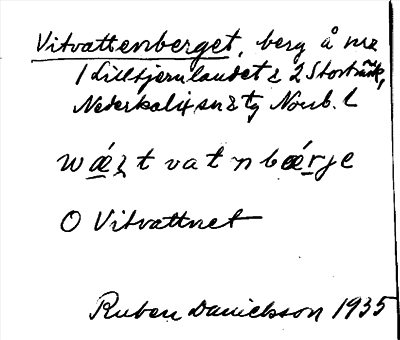 Vitvattenberget, berg å nr
1 Lilltjernlandet & 2 Storträsk,
Nederkalix sn & tg Norrb. l
wǽʒtvatnbǽrje
O Vitvattnet
Ruben Danielsson 1935